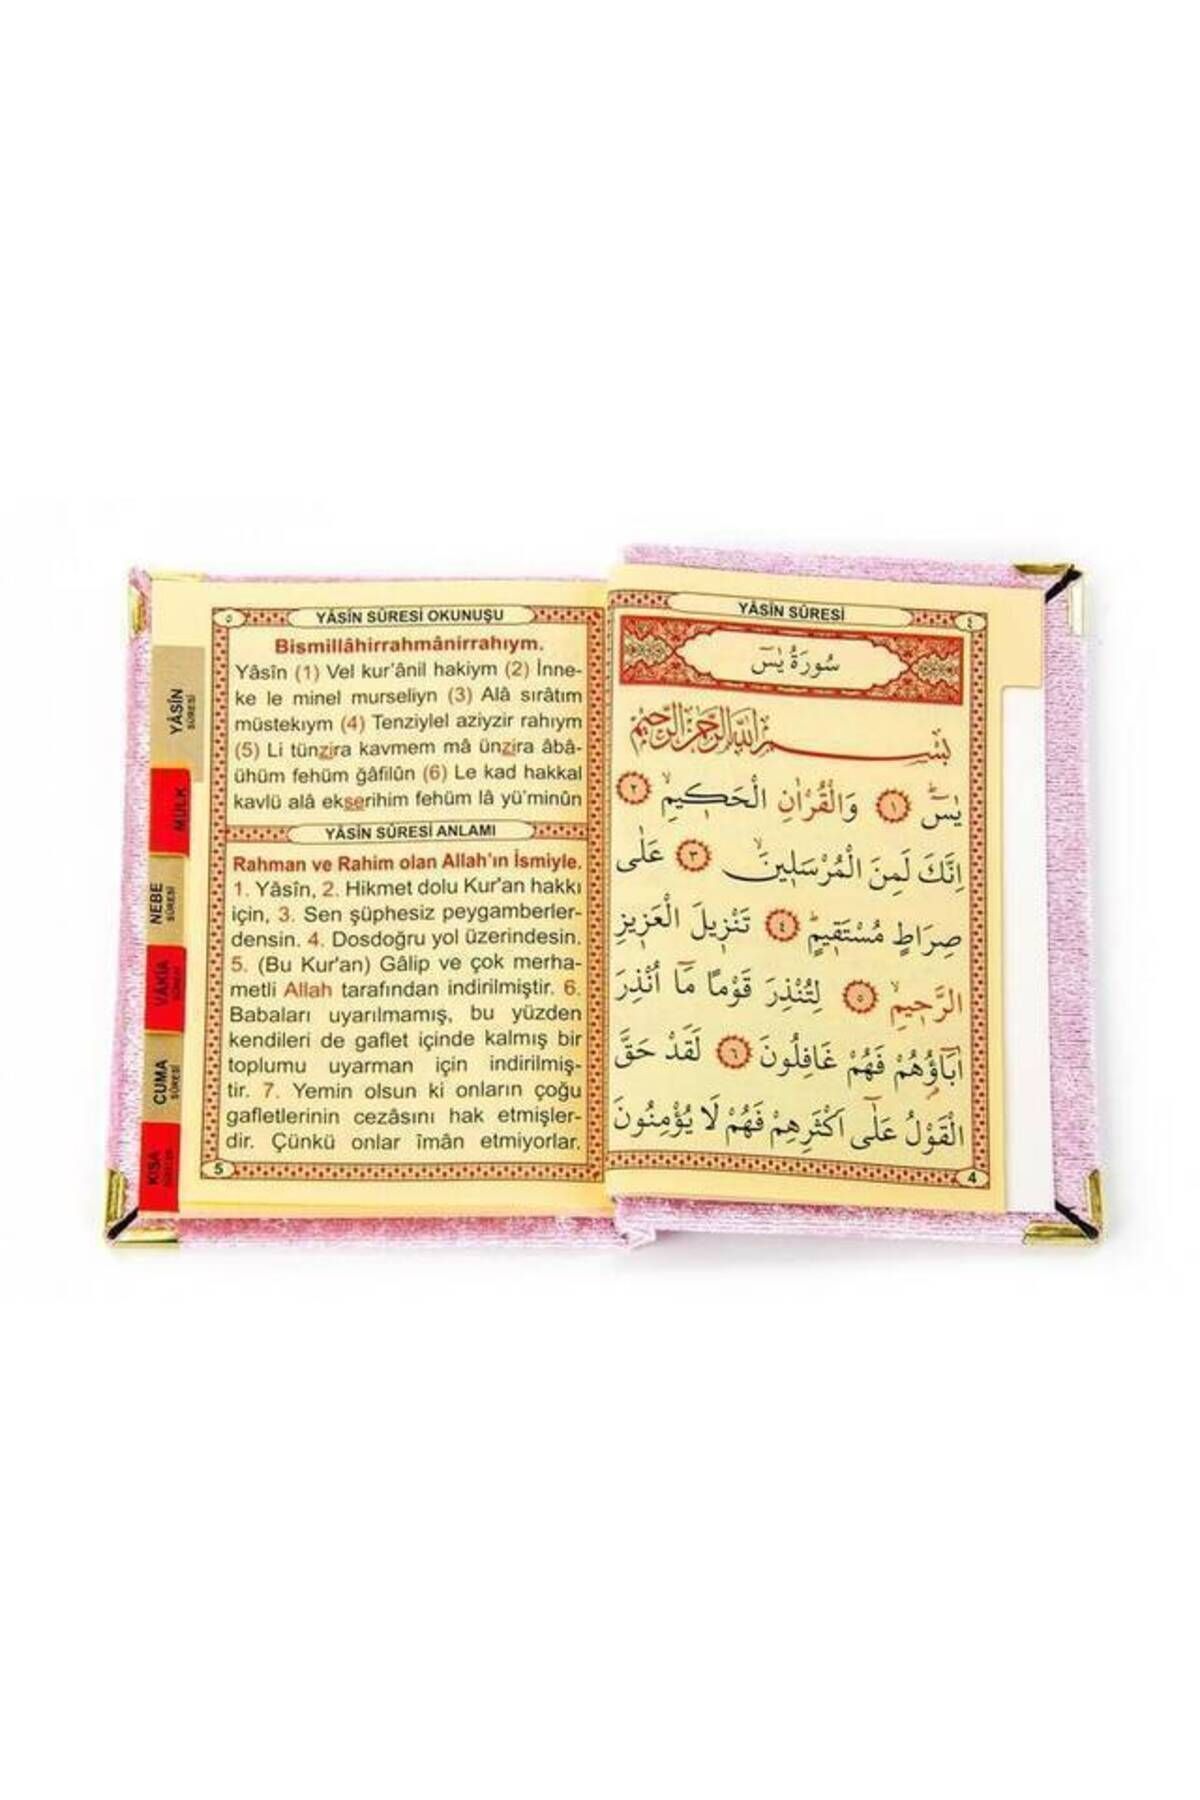 ٥ YÂSÎN SÛRESİ OKUNUŞU
Bismillâhirrahmânirrahıym.
Yâsîn (1) Vel kur'ânil hakiym (2) İnne-
ke le minel murseliyn (3) Alâ sırâtım
müstekıym (4) Tenziylel aziyzir rahıym
(5) Li tünzira kavmem mâ ünzira âbâ-
ühüm fehüm ğâfilûn (6) Le kad hakkal
kavlü alâ ekserihim fehüm lâ yü'minûn
YÂSÎN SÛRESİ ANLAMI
Rahman ve Rahim olan Allah'ın İsmiyle.
1. Yâsîn, 2. Hikmet dolu Kur'an hakkı
için, 3. Sen şüphesiz peygamberler-
densin. 4. Dosdoğru yol üzerindesin.
5. (Bu Kur'an) Gâlip ve çok merha-
metli Allah tarafından indirilmiştir. 6.
Babaları uyarılmamış, bu yüzden
kendileri de gaflet içinde kalmış bir
toplumu uyarman için indirilmiş-
tir. 7. Yemin olsun ki onların çoğu
gafletlerinin cezâsını hak etmişler-
dir. Çünkü onlar îmân etmiyorlar.
5
YÂSÎN
SÛRESİ
MÜLK
NEBE
SÛRESİ
VÂKIA
CUMA
SÛRESİ
KISA
YÂSÎN SÛRESİ ٤
سُورَةُ يٰسٓ
بِسْمِ اللّٰهِ الرَّحْمٰنِ الرَّحِيمِ
يٰسٓ ۚ ﴿١﴾ وَالْقُرْاٰنِ الْحَكِيمِ ۙ ﴿٢﴾
اِنَّكَ لَمِنَ الْمُرْسَلِينَ ۙ ﴿٣﴾ عَلٰى
صِرَاطٍ مُسْتَقِيمٍ ۜ ﴿٤﴾ تَنْزِيلَ الْعَزِيزِ
الرَّحِيمِ ۙ ﴿٥﴾ لِتُنْذِرَ قَوْمًا مَٓا اُنْذِرَ
اٰبَٓاؤُ۬هُمْ فَهُمْ غَافِلُونَ ﴿٦﴾ لَقَدْ حَقَّ
الْقَوْلُ عَلٰٓى اَكْثَرِهِمْ فَهُمْ لَا يُؤْمِنُونَ
4